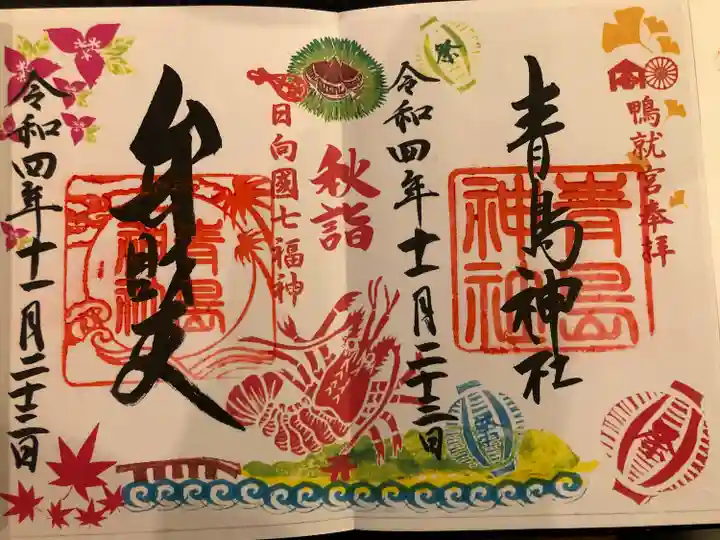 鴨就宮奉拝
青島神社
青島
神社
令和四年十一月二十三日
祭
祭
祭
秋詣
日向國七福神
弁財天
青島
神社
令和四年十一月二十三日